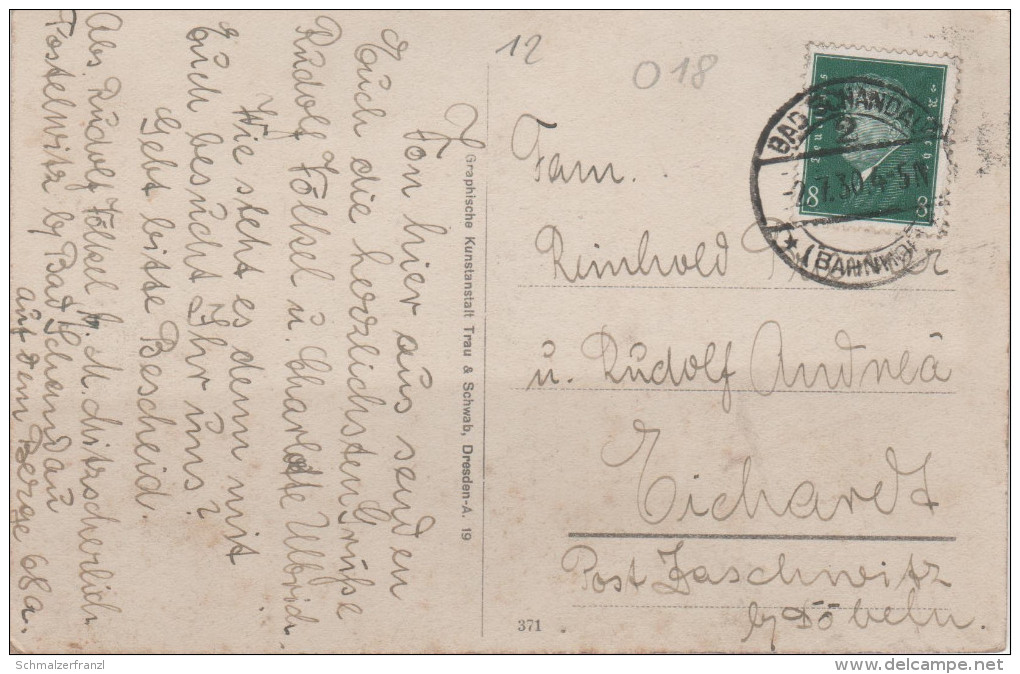 12
018
Deutsches Reich
8 8
BAD SCHANDAU
2
-2.7.30.4-5N
* (BAHNHOF)
Von hier aus senden
Euch die herzlichsten Grüße
Rudolf Fölkel u. Charlotte Ulbrich
Wie steht es denn mit
Euch besucht Ihr uns?
Gebt bitte Bescheid.
Abs. Rudolf Fölkel b. M.
Postelwitz b/ Bad Schandau
auf dem Berge 68a.
Graphische Kunstanstalt Trau & Schwab, Dresden-A. 19
371
Fam.
Reinhold
u. Rudolf Andreä
Eichardt
Post Zaschwitz
b/ Döbeln.
Schmalzerfranzl
http://www.delcampe.net